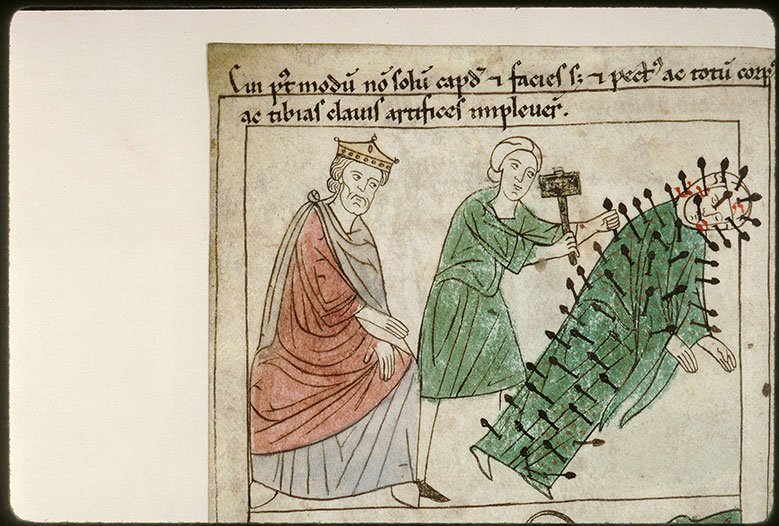 Cui p᷒t modū nō solū capđ ⁊ facies sꝫ ⁊ pectꝰ ac totū corpꝰ
ac tibias clauis artifices impleuer̄.